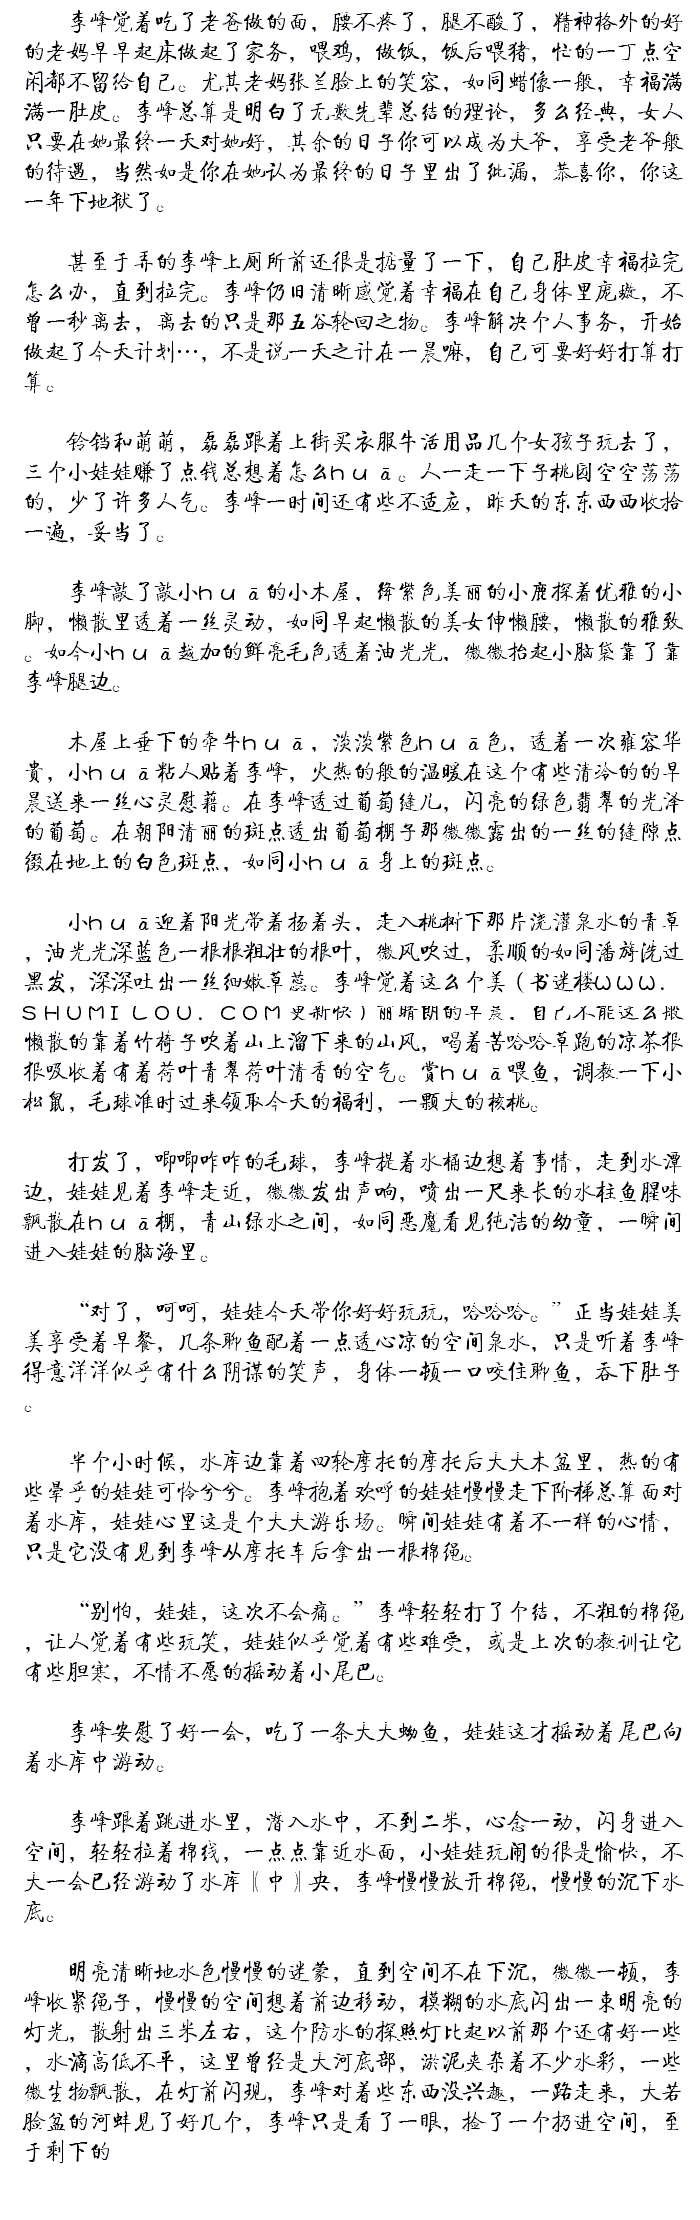 李峰觉着吃了老爸做的面，腰不疼了，腿不酸了，精神格外的好
的老妈早早起床做起了家务，喂鸡，做饭，饭后喂猪，忙的一丁点空
闲都不留给自己。尤其老妈张兰脸上的笑容，如同蜡像一般，幸福满
满一肚皮。李峰总算是明白了无数先辈总结的理论，多么经典，女人
只要在她最终一天对她好，其余的日子你可以成为大爷，享受老爷般
的待遇，当然如是你在她认为最终的日子里出了纰漏，恭喜你，你这
一年下地狱了。
甚至于弄的李峰上厕所前还很是掂量了一下，自己肚皮幸福拉完
怎么办，直到拉完。李峰仍旧清晰感觉着幸福在自己身体里庇璇，不
曾一秒离去，离去的只是那五谷轮回之物。李峰解决个人事务，开始
做起了今天计划…，不是说一天之计在一晨嘛，自己可要好好打算打
算。
铃铛和萌萌，磊磊跟着上街买衣服牛活用品几个女孩子玩去了，
三个小娃娃赚了点钱总想着怎么huā。人一走一下子桃园空空荡荡
的，少了许多人气。李峰一时间还有些不适应，昨天的东东西西收拾
一遍，妥当了。
李峰敲了敲小huā的小木屋，绛紫色美丽的小鹿探着优雅的小
脚，懒散里透着一丝灵动，如同早起懒散的美女伸懒腰，懒散的雅致
。如今小huā越加的鲜亮毛色透着油光光，微微抬起小脑袋靠了靠
李峰腿边。
木屋上垂下的牵牛huā，淡淡紫色huā色，透着一次雍容华
贵，小huā粘人贴着李峰，火热的般的温暖在这个有些清冷的的早
晨送来一丝心灵慰藉。在李峰透过葡萄缝儿，闪亮的绿色翡翠的光泽
的葡萄。在朝阳清丽的斑点透出葡萄棚子那微微露出的一丝的缝隙点
缀在地上的白色斑点，如同小huā身上的斑点。
小huā迎着阳光带着扬着头，走入桃树下那片浇灌泉水的青草
，油光光深蓝色一根根粗壮的根叶，微风吹过，柔顺的如同潘旃洗过
黑发，深深吐出一丝细嫩草蕊。李峰觉着这么个美（书迷楼ωωω．
SHUMILOU．COM更新快）丽晴朗的早晨，自己不能这么般
懒散的靠着竹椅子吹着山上溜下来的山风，喝着苦哈哈草跑的凉茶根
根吸收着有着荷叶青翠荷叶清香的空气。赏huā喂鱼，调教一下小
松鼠，毛球准时过来领取今天的福利，一颗大的核桃。
打发了，唧唧咋咋的毛球，李峰提着水桶边想着事情，走到水潭
边，娃娃见着李峰走近，微微发出声响，喷出一尺来长的水柱鱼腥味
飘散在huā棚，青山绿水之间，如同恶魔看见纯洁的幼童，一瞬间
进入娃娃的脑海里。
“对了，呵呵，娃娃今天带你好好玩玩，哈哈哈。”正当娃娃美
美享受着早餐，几条鲫鱼配着一点透心凉的空间泉水，只是听着李峰
得意洋洋似乎有什么阴谋的笑声，身体一顿一口咬住鲫鱼，吞下肚子
。
半个小时候，水库边靠着四轮摩托的摩托后大大木盆里，热的有
些晕乎的娃娃可怜兮兮。李峰抱着欢呼的娃娃慢慢走下阶梯总算面对
着水库，娃娃心里这是个大大游乐场。瞬间娃娃有着不一样的心情，
只是它没有见到李峰从摩托车后拿出一根棉绳。
“别怕，娃娃，这次不会痛。”李峰轻轻打了个结，不粗的棉绳
，让人觉着有些玩笑，娃娃似乎觉着有些难受，或是上次的教训让它
有些胆寒，不情不愿的摇动着小尾巴。
李峰安慰了好一会，吃了一条大大鲫鱼，娃娃这才摇动着尾巴向
着水库中游动。
李峰跟着跳进水里，潜入水中，不到二米，心念一动，闪身进入
空间，轻轻拉着棉线，一点点靠近水面，小娃娃玩闹的很是愉快，不
大一会已经游动了水库〖中〗央，李峰慢慢放开棉绳，慢慢的沉下水
底。
明亮清晰地水色慢慢的迷蒙，直到空间不在下沉，微微一顿，李
峰收紧绳子，慢慢的空间想着前边移动，模糊的水底闪出一束明亮的
灯光，散射出三米左右，这个防水的探照灯比起以前那个还有好一些
，水滴高低不平，这里曾经是大河底部，淤泥夹杂着不少水彩，一些
微生物飘散，在灯前闪现，李峰对着些东西没兴趣，一路走来，大若
脸盆的河蚌见了好几个，李峰只是看了一眼，捡了一个扔进空间，至
于剩下的